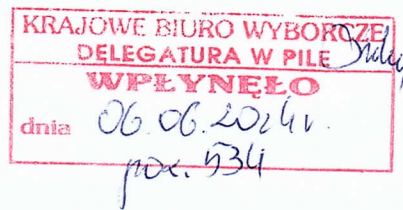 KRAJOWE BIURO WYBORCZE
DELEGATURA W PILE
WPŁYNĘŁO
dnia 06.06.2024r.
poz. 534